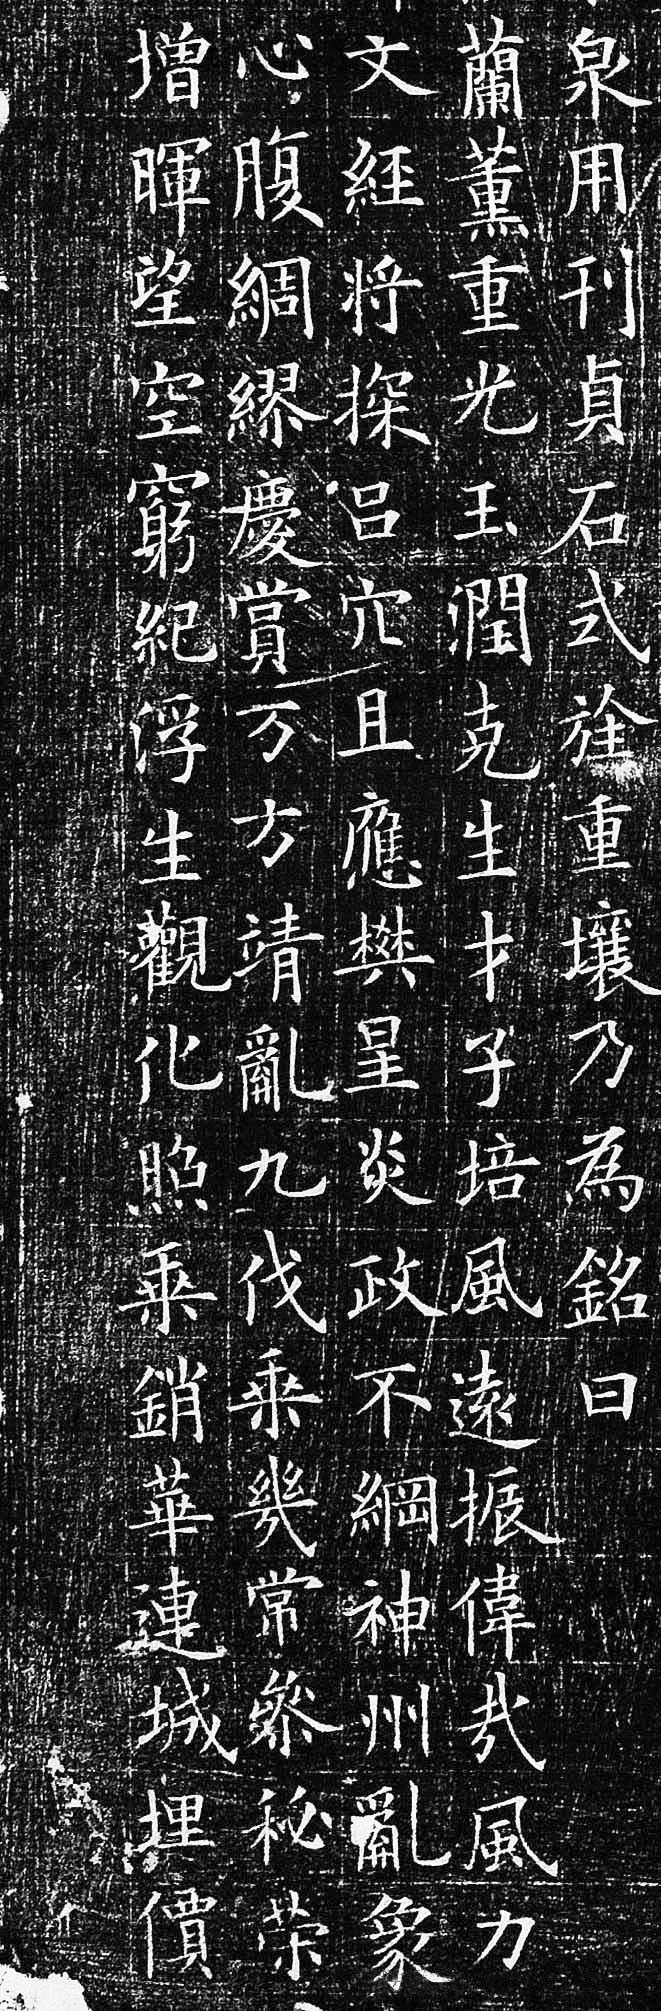 泉用刊貞石式旌重壤乃為銘曰
蘭薫重光玉潤克生才子培風遠振偉哉風力
文經將探呂宂且應樊星炎政不綱神州亂象
心腹綢繆慶賞万方靖亂九伐乘幾常叅秘荣
增暉望空窮紀浮生觀化照乘銷華連城埋價